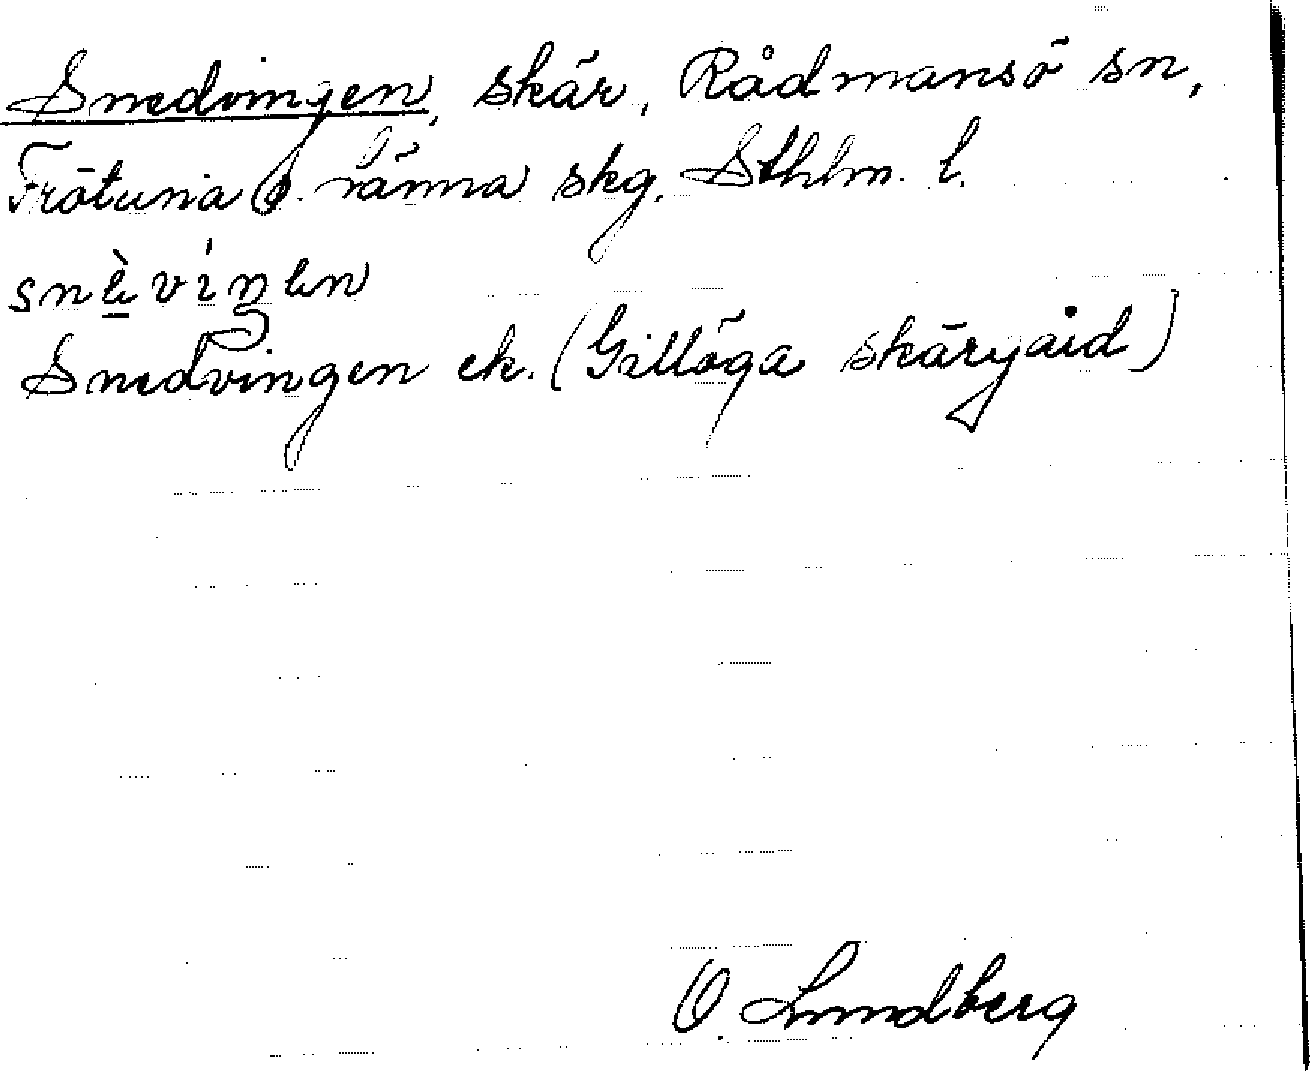 Snedvingen, skär, Rådmansö sn,
Frötuna o. Länna skg. Sthlm. l.
snèvíŋen
Snedvingen ek. (Gillöga skärgård)
O. Lundberg